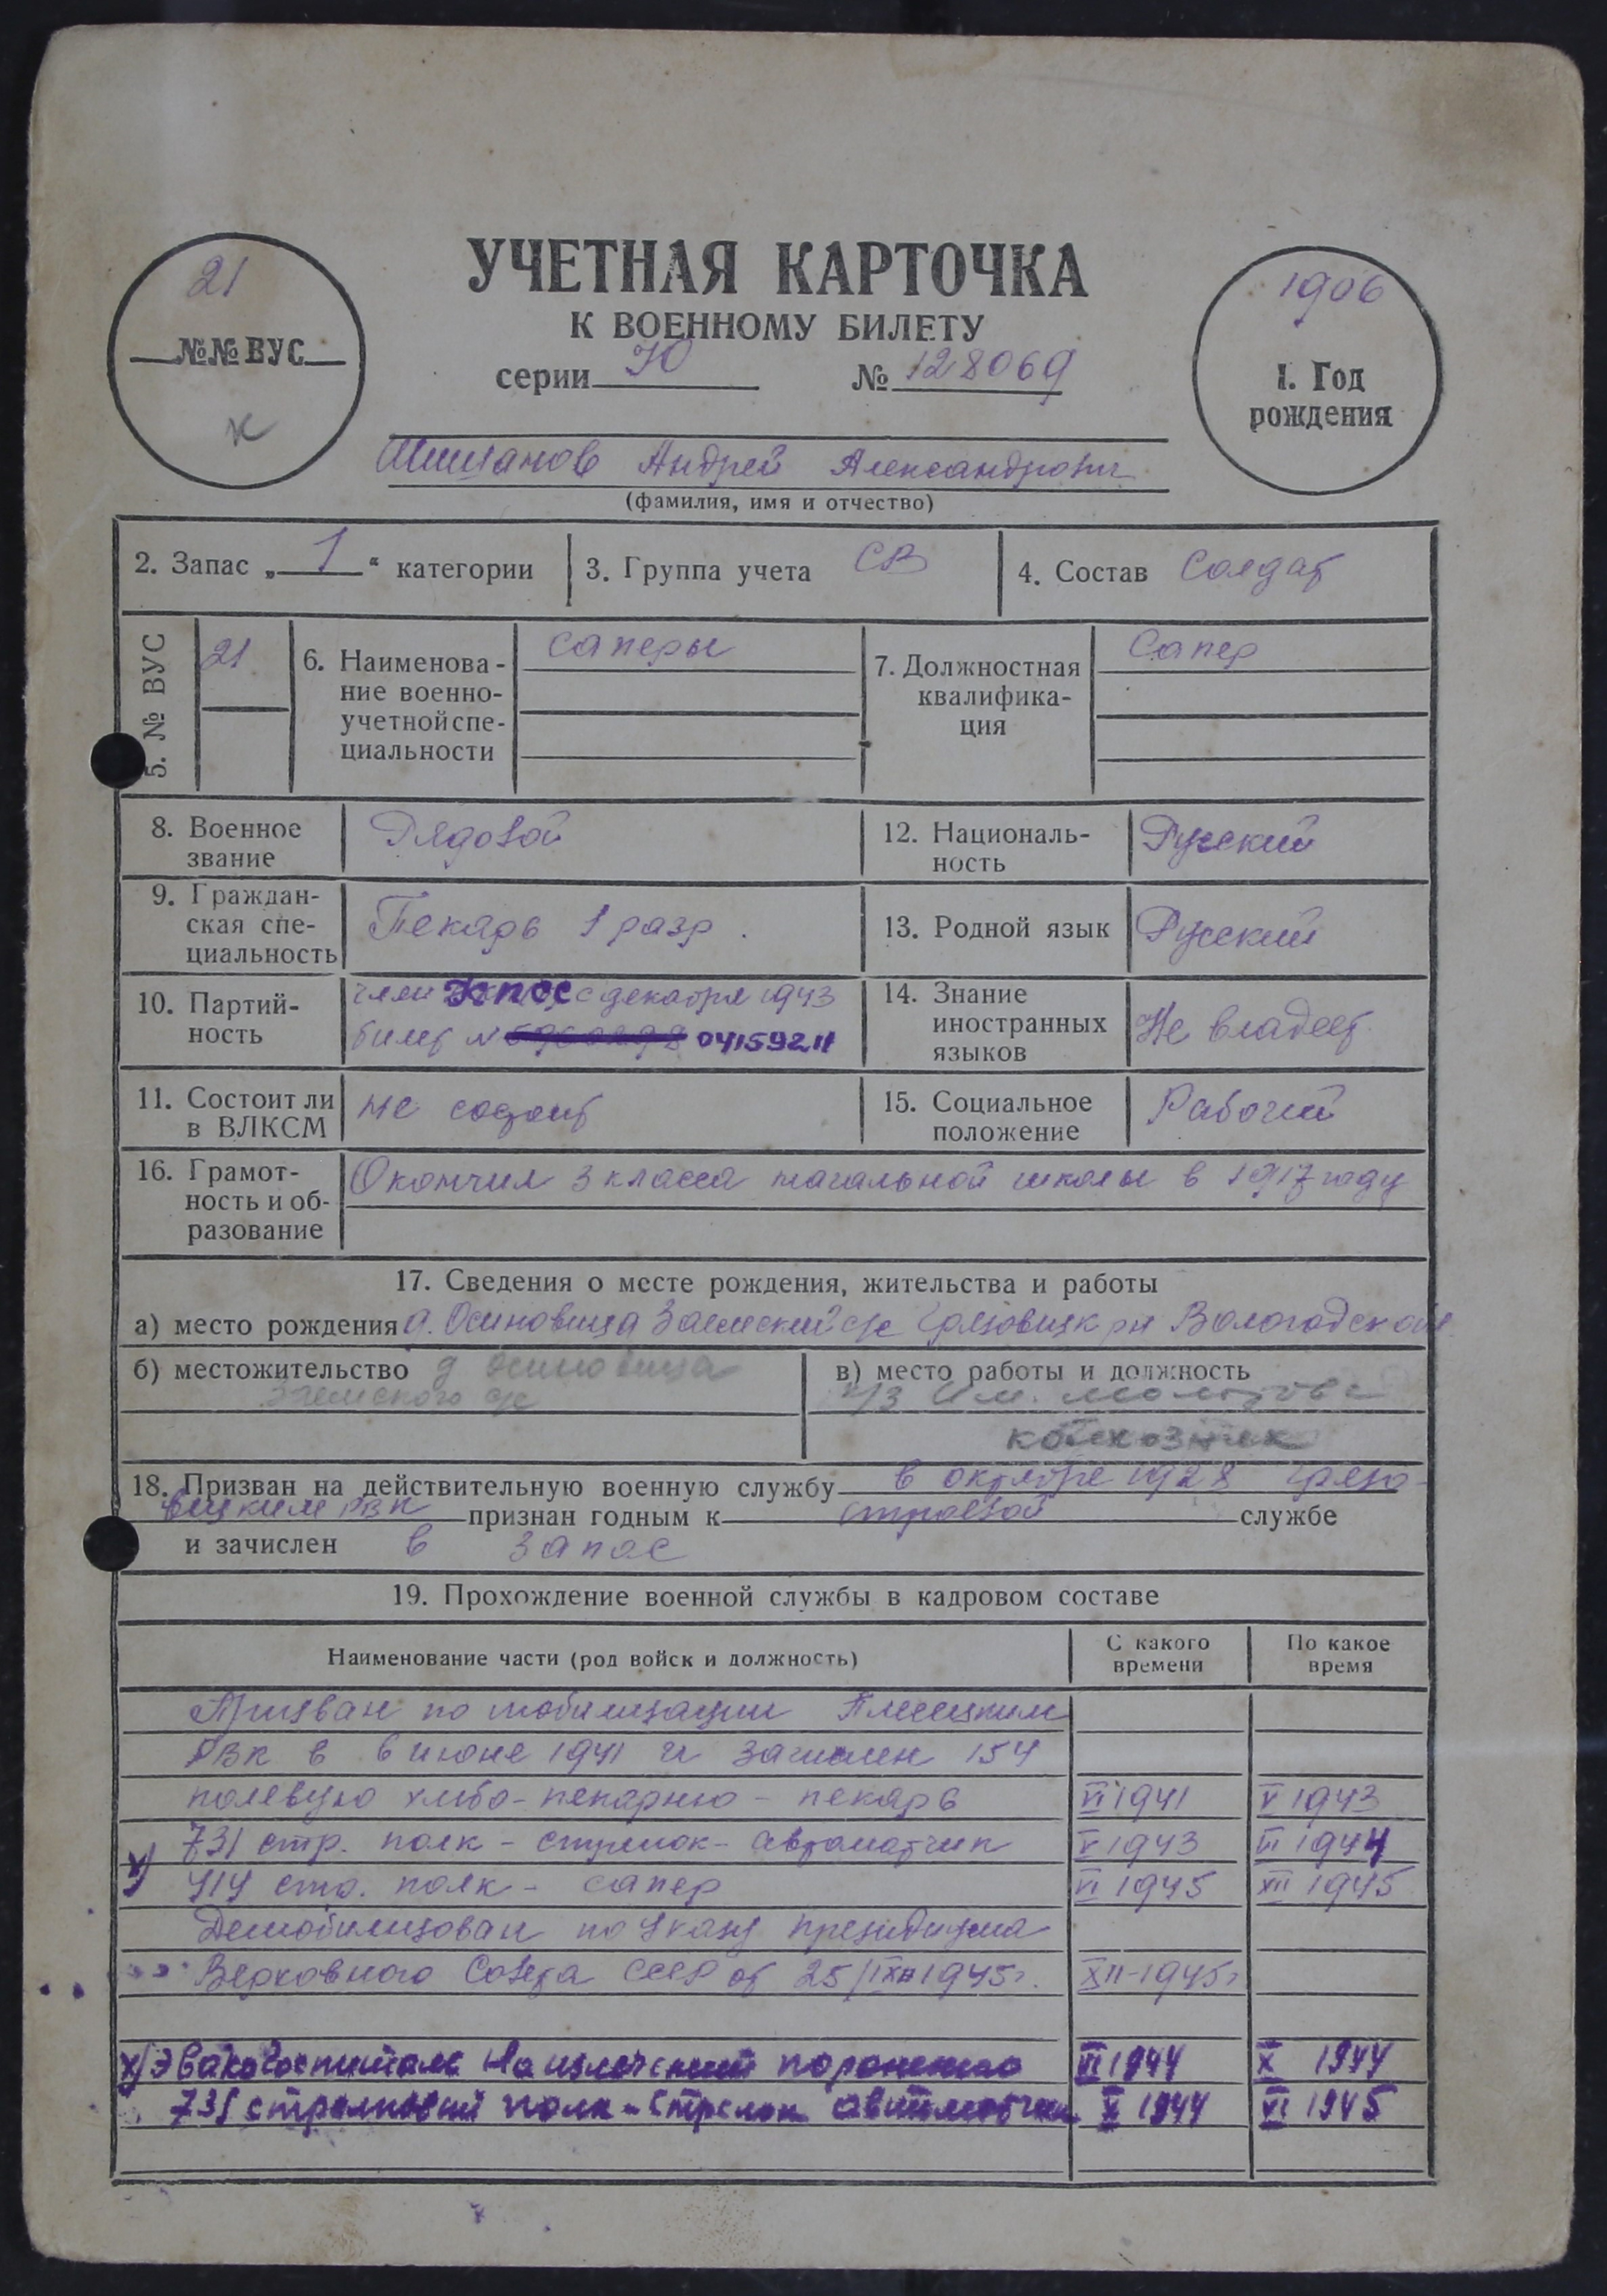 УЧЕТНАЯ КАРТОЧКА
К ВОЕННОМУ БИЛЕТУ
серии Ю № 128069
21
№№ ВУС
1906
1. Год
рождения
Андрей Александрович
(фамилия, имя и отчество)
2. Запас „ 1 “ категории
3. Группа учета СВ
4. Состав Солдат
5. № ВУС 21
6. Наименова-
ние военно-
учетной спе-
циальности
саперы
7. Должностная
квалифика-
ция
Сапер
8. Военное
звание
Рядовой
9. Граждан-
ская спе-
циальность
Пекарь 1 разр.
10. Партий-
ность
член КПСС с декабря 1943
билет № 04159211
11. Состоит ли
в ВЛКСМ
не состоит
12. Националь-
ность
Русский
13. Родной язык Русский
14. Знание
иностранных
языков
Не владеет
15. Социальное
положение
Рабочий
16. Грамот-
ность и об-
разование
Окончил 3 класса начальной школы в 1917 году
17. Сведения о месте рождения, жительства и работы
а) место рождения д. Осиновица Заемский с/с Грязовицк рн Вологодской
б) местожительство д Осиновица
Заемского с/с
в) место работы и должность
к/з им. Молотова
колхозник
18. Призван на действительную военную службу в октябре 1928 Грязо-
вицким РВК признан годным к строевой службе
и зачислен в запас
19. Прохождение военной службы в кадровом составе
Наименование части (род войск и должность)
С какого
времени
По какое
время
Призван по мобилизации Плесецким
РВК в июне 1941 и зачислен 154
полевую хлебо-пекарню - пекарь VI 1941 V 1943
731 стр. полк - стрелок-автоматчик V 1943 VI 1944
х) 414 стр. полк - сапер VI 1945 XII 1945
Демобилизован по Указу президиума
Верховного Совета СССР от 25/IX 1945г. XII-1945г
х) Эвакогоспиталь на излечении по ранению VI 1944 X 1944
731 стрелковый полк - Стрелок автоматчик X 1944 VI 1945